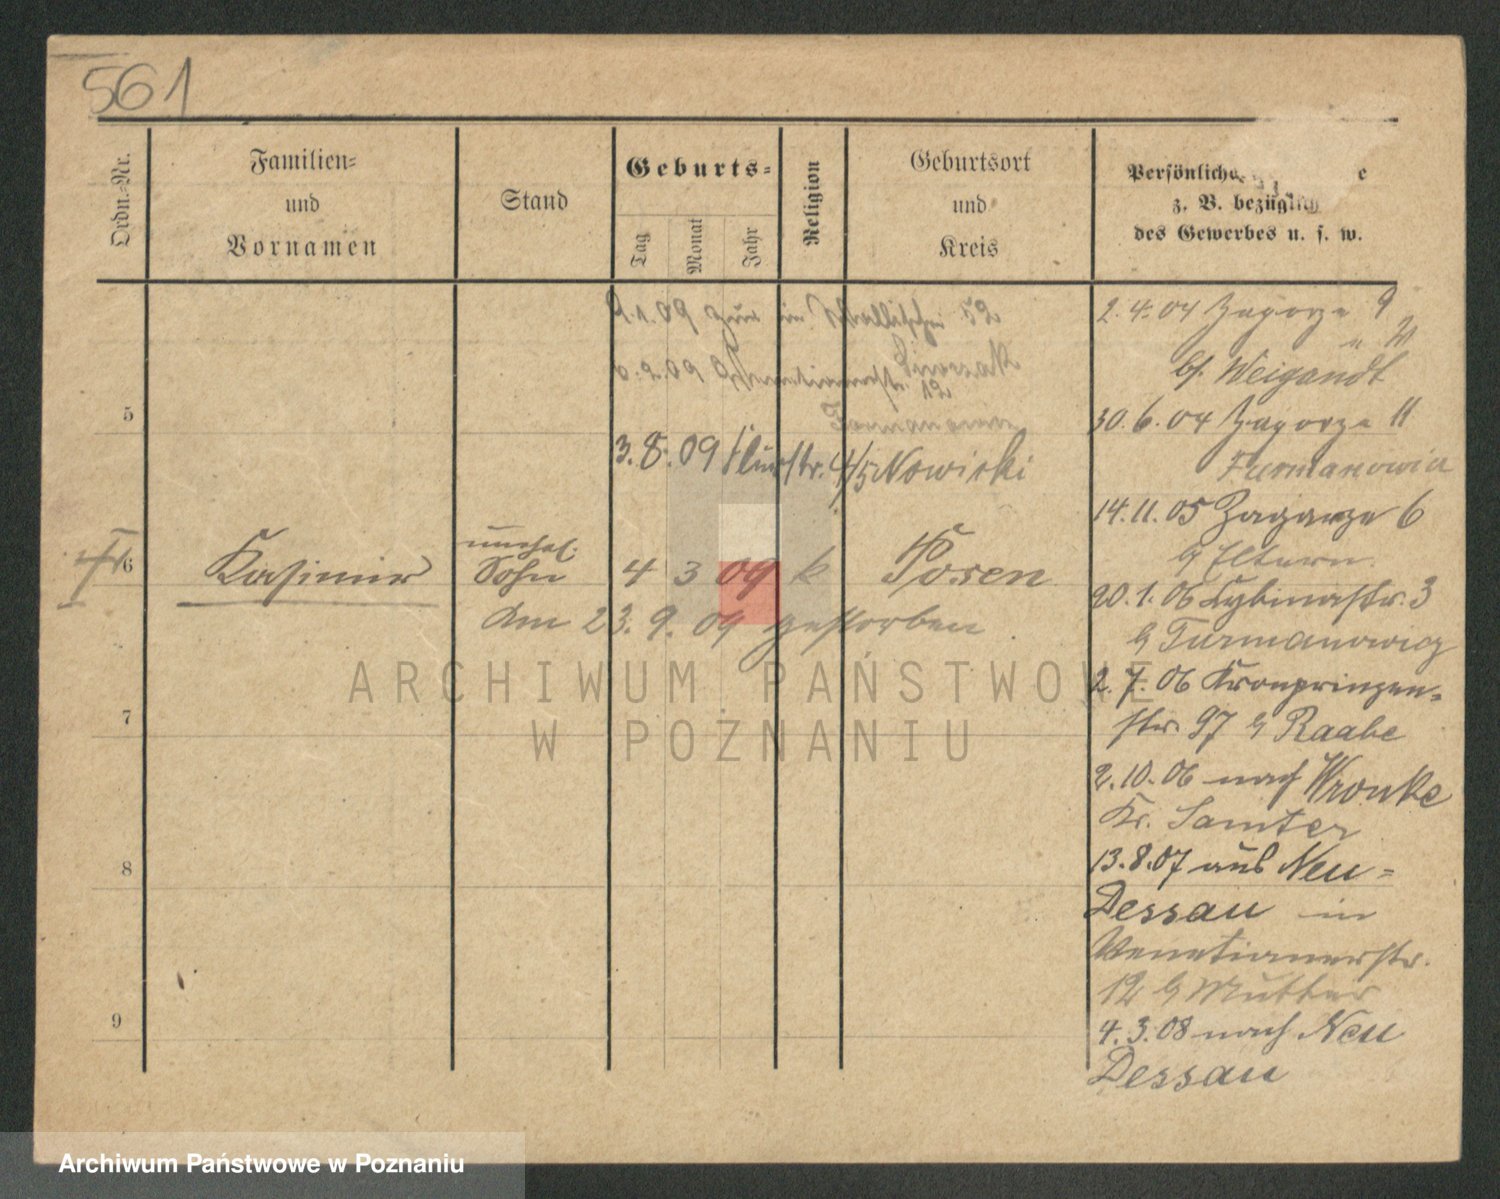 561
Ordn.-Nr.
Familien-
und
Vornamen
Stand
Geburts-
Tag
Monat
Jahr
Religion
Geburtsort
und
Kreis
Persönliche e
z. B. bezüglich
des Gewerbes u. s. w.
9.1.09 zur in Wallischei 52
6.2.09 Venetianerstr. 12
Furmanowicz
3.8.09 Flurstr. 4/5 Nowicki
5
6
Kasimir
unehel.
Sohn
4 3 09 k Posen
Am 23.9.09 gestorben
7
8
9
2.4.04 Zagorze 9
bf. Weigandt
30.6.04 Zagorze 11
Furmanowicz
14.11.05 Zagorze 6
b/ Eltern
20.1.06 Cybinastr. 3
b/ Furmanowicz
2.7.06 Kronprinzen-
str. 97 b/ Raabe
2.10.06 nach Wronke
Kr. Samter
13.8.07 aus Neu-
Dessau in
Venetianerstr.
12 b/ Mutter
4.3.08 nach Neu
Dessau
ARCHIWUM PAŃSTWOWE
W POZNANIU
Archiwum Państwowe w Poznaniu